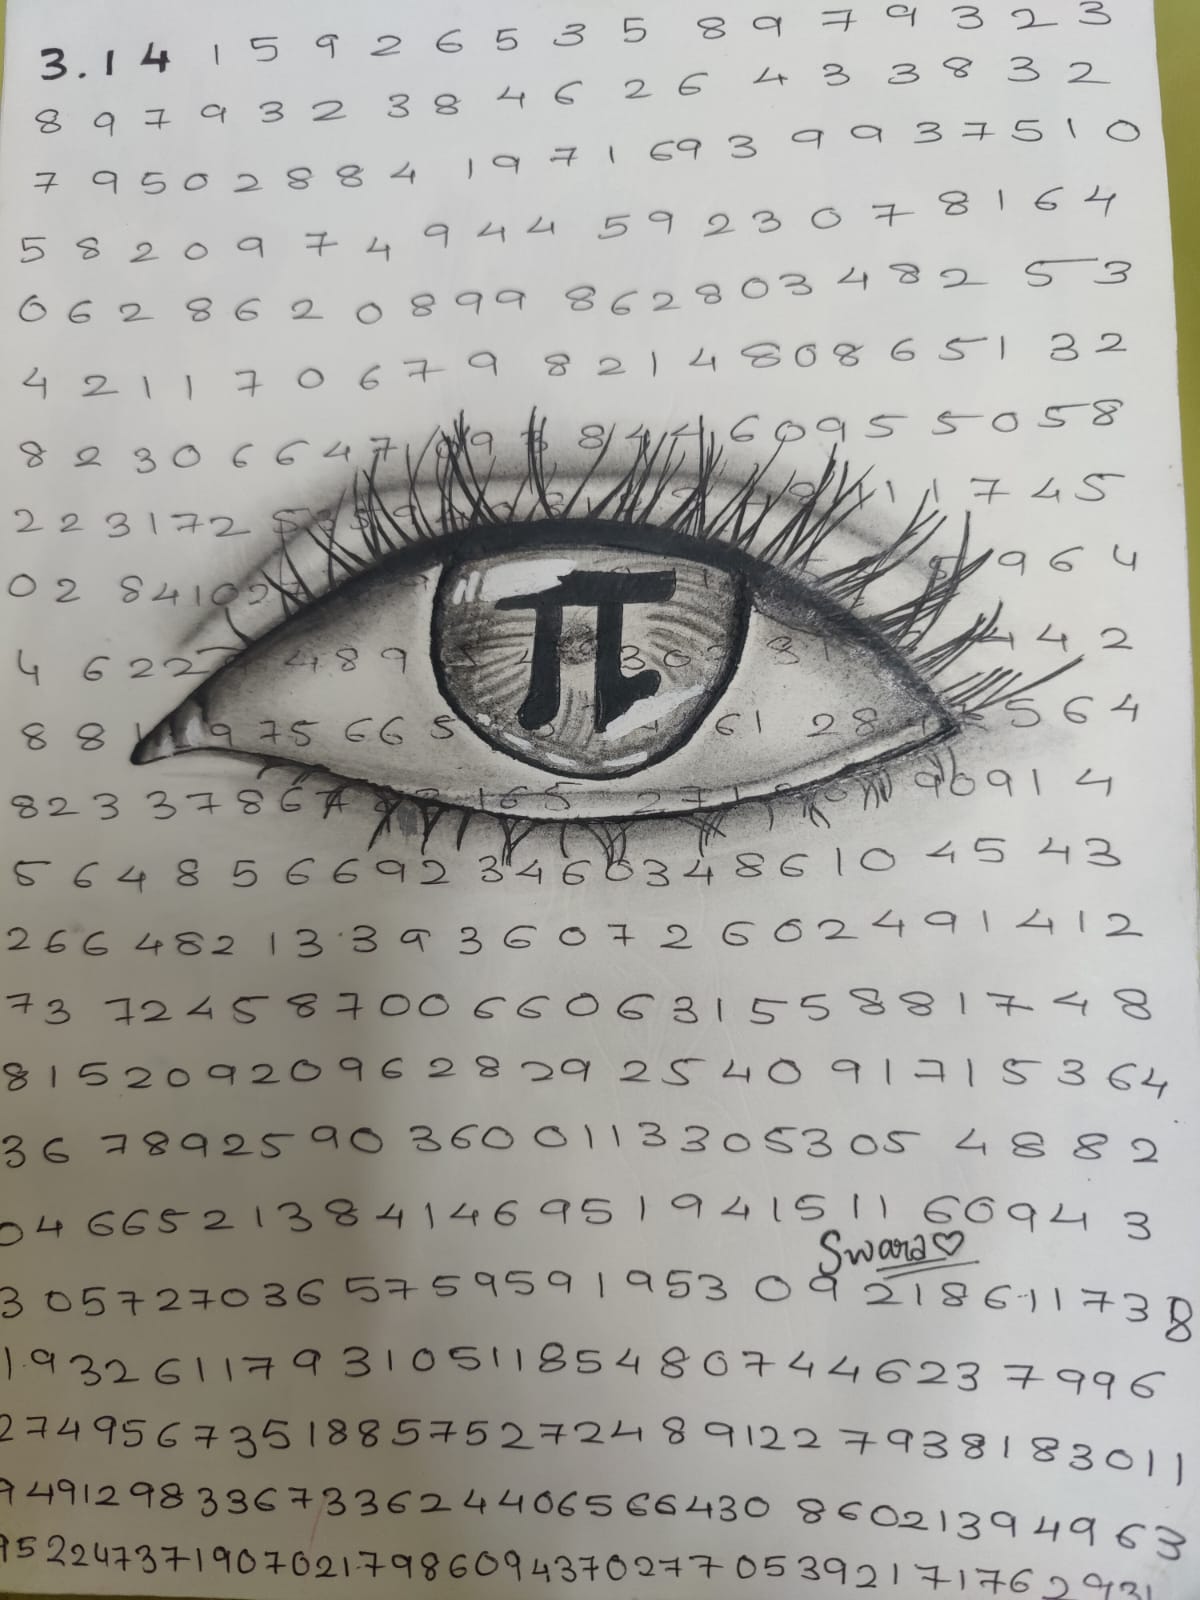 3.14 1 5 9 2 6 5 3 5 8 9 7 9 3 2 3
8 9 7 9 3 2 3 8 4 6 2 6 4 3 3 8 3 2
7 9 5 0 2 8 8 4 1 9 7 1 69 3 9 9 3 7 5 1 0
5 8 2 0 9 7 4 9 4 4 5 9 2 3 0 7 8 1 6 4
0 6 2 8 6 2 0 8 9 9 8 6 2 8 0 3 4 8 2 5 3
4 2 1 1 7 0 6 7 9 8 2 1 4 8 0 8 6 5 1 3 2
8 2 3 0 6 6 4 7 9 8 4 4 6 0 9 5 5 0 5 8
2 2 3 1 7 2 5 3 5 9 1 1 7 4 5
0 2 8 4 1 0 2 9 6 4
4 6 2 2 4 8 9 3 0 3 4 4 2
8 8 1 9 7 5 6 6 5 6 1 2 8 5 6 4
8 2 3 3 7 8 6 7 1 6 5 2 7 1 9 0 9 1 4
5 6 4 8 5 6 6 9 2 3 4 6 0 3 4 8 6 1 0 4 5 4 3
2 6 6 4 8 2 1 3 3 9 3 6 0 7 2 6 0 2 4 9 1 4 1 2
7 3 7 2 4 5 8 7 0 0 6 6 0 6 3 1 5 5 8 8 1 7 4 8
8 1 5 2 0 9 2 0 9 6 2 8 2 9 2 5 4 0 9 1 7 1 5 3 6 4
3 6 7 8 9 2 5 9 0 3 6 0 0 1 1 3 3 0 5 3 0 5 4 8 8 2
0 4 6 6 5 2 1 3 8 4 1 4 6 9 5 1 9 4 1 5 1 1 6 0 9 4 3
Swara♡
3 0 5 7 2 7 0 3 6 5 7 5 9 5 9 1 9 5 3 0 9 2 1 8 6 1 1 7 3 8
1 9 3 2 6 1 1 7 9 3 1 0 5 1 1 8 5 4 8 0 7 4 4 6 2 3 7 9 9 6
2 7 4 9 5 6 7 3 5 1 8 8 5 7 5 2 7 2 4 8 9 1 2 2 7 9 3 8 1 8 3 0 1 1
9 4 9 1 2 9 8 3 3 6 7 3 3 6 2 4 4 0 6 5 6 6 4 3 0 8 6 0 2 1 3 9 4 9 6 3
9 5 2 2 4 7 3 7 1 9 0 7 0 2 1 7 9 8 6 0 9 4 3 7 0 2 7 7 0 5 3 9 2 1 7 1 7 6 2 9 3 1
π